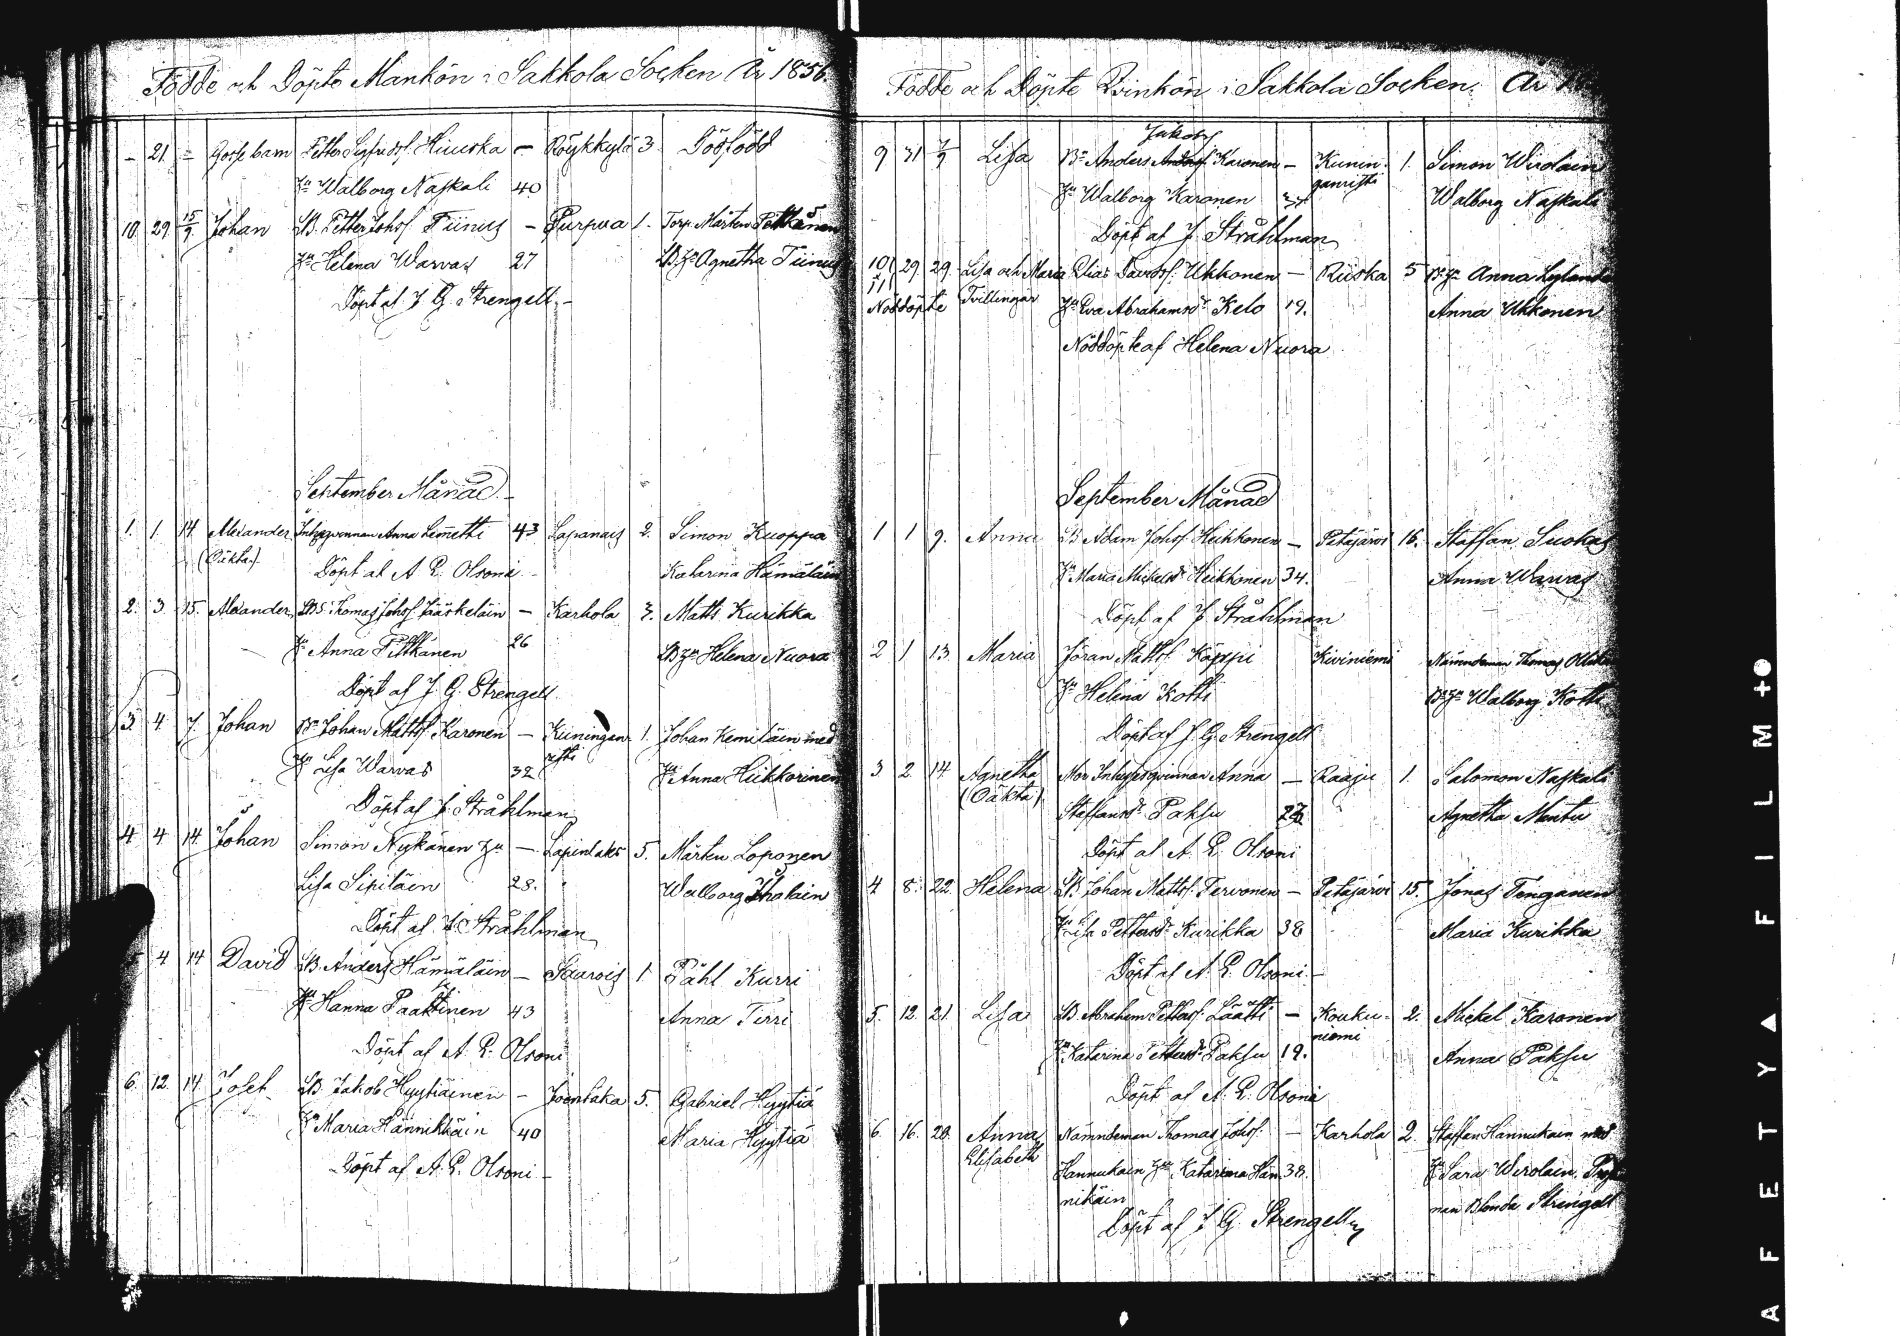 Födde och Döpte Mankön i Sakkola Socken År 1856.
- 21. = Gosse barn Petter Sigfredss. Hiuska - Röykkylä 3. Dödfödd
Hu Walborg Naskali 40
10. 29. 15/9 Johan LB. Petter Johss. Tiinus - Purpua 1. Torp. Mårten Pitkänen
Hu Helena Warvas 27 LB. Hu Agnetha Tiinus
Döpt af J. G. Strengell
September Månad
1. 1. 14. Alexander Inhysqvinnan Anna Lemetti 43 Lapanais 2. Simon Kuoppa
(Oäkta) Döpt af A. E. Olsoni Katarina Hämäläin
2. 3. 15. Alexander LBS: Thomas Johss. Jääskeläin - Karhola 3. Matts Kurikka
Hu Anna Pitkänen 26 LB Hu Helena Nuora
Döpt af J. G. Strengell
3. 4 7. Johan Bn Johan Mattss. Karonen - Kuningan- 1. Johan Kemiläin med
risti
Hu Lisa Warvas 32 Hu Anna Heikkorinen
Döpt af J. Stråhlman
4 4 14 Johan Simon Nykänen Hu - Lapinlaks 5. Mårten Loponen
Lisa Sipiläin 28. Walborg Iholain
Döpt af J. Stråhlman
5 4 14 David LB. Anders Hämäläin - Saarois 1 Påhl Kurri
Hu Hanna Paakkinen 43 Anna Terri
Döpt af A. E. Olsoni
6. 12. 14 Josef LB Jakob Hyytiäinen - Joentaka 5. Gabriel Hyytiä
Hu Maria Hännikkäin 40 Maria Hyytiä
Döpt af A. E. Olsoni
Födde och Döpte Qvinkön i Sakkola Socken. År
Jakobs
9 31 7/9 Lisa Bn Anders Karonen - Kunin- 1. Simon Wirolain
ganristi
Hu Walborg Karonen Walborg Naskali
Döpt af J. Stråhlman
10/ 29. 29. Lisa och Maria Elias Davidss. Ukkonen - Riiska 5 Bn Hu Anna
11/
Nöddöpte Tvillingar Hu Eva Abrahamsdr Kelo 19. Anna Ukkonen
Nöddöpte af Helena Nuora
September Månad
1 1 9. Anna LB Adam Johss. Heikkonen - Petäjärvi 16. Staffan Suokas
Hu Maria Mickelsdr Heikkonen 34. Anna Warvas
Döpt af J. Stråhlman
2 1 13. Maria Jöran Mattss. Käppi Kiviniemi Nämndeman Thomas
Hu Helena Kotti Bn Hu Walborg Kotti
Döpt af J. G. Strengell
3 2 14 Agnetha Mor Inhysesqvinnan Anna - Raaju 1. Salomon Naskali
(Oäkta) Staffansdr Paksu Agnetha Mentu
Döpt af A. E. Olsoni
4 8. 22. Helena LB. Johan Mattss. Tervonen - Petäjärvi 15. Jonas Tenganen
Hu Lisa Pettersdr Kurikka 38 Maria Kurikka
Döpt af A. E. Olsoni
5. 12. 21 Lisa LB Abraham Petterss. Läätti - Kouku- 2. Mickel Karonen
niemi
Hu Katarina Pettersdr Paksu 19. Anna Paksu
Döpt af A. E. Olsoni
6. 16. 20. Anna Nämndeman Thomas Johss. - Karhola 2. Staffan Hannukain med
Elisabeth Hannukain Hu Katarina Hän- 38. Hu Sara Wirolain.
nikäin nan Blenda Strengell
Döpt af J. G. Strengell
AFETY FILM